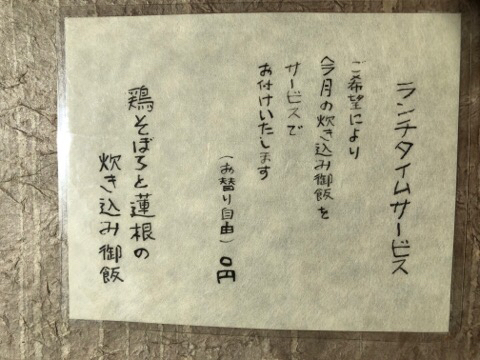 ランチタイムサービス
ご希望により
今月の炊き込み御飯を
サービスで
お付けいたします
(お替り自由) 0円
鶏そぼろと蓮根の
炊き込み御飯